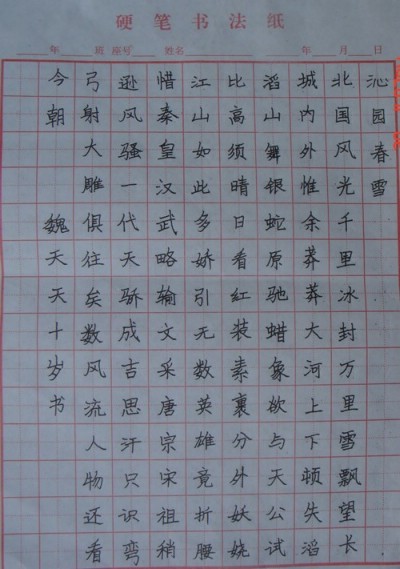 硬笔书法纸
年 班 座号 姓名 年 月 日
沁园春雪
北国风光千里冰封万里雪飘望长
城内外惟余莽莽大河上下顿失滔
滔山舞银蛇原驰蜡象欲与天公试
比高须晴日看红装素裹分外妖娆
江山如此多娇引无数英雄竟折腰
惜秦皇汉武略输文采唐宗宋祖稍
逊风骚一代天骄成吉思汗只识弯
弓射大雕俱往矣数风流人物还看
今朝 魏天天十岁书